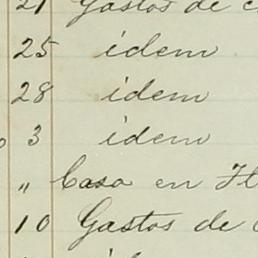 21 Gastos de
25 idem
28 idem
3 idem
" Casa en
10 Gastos de